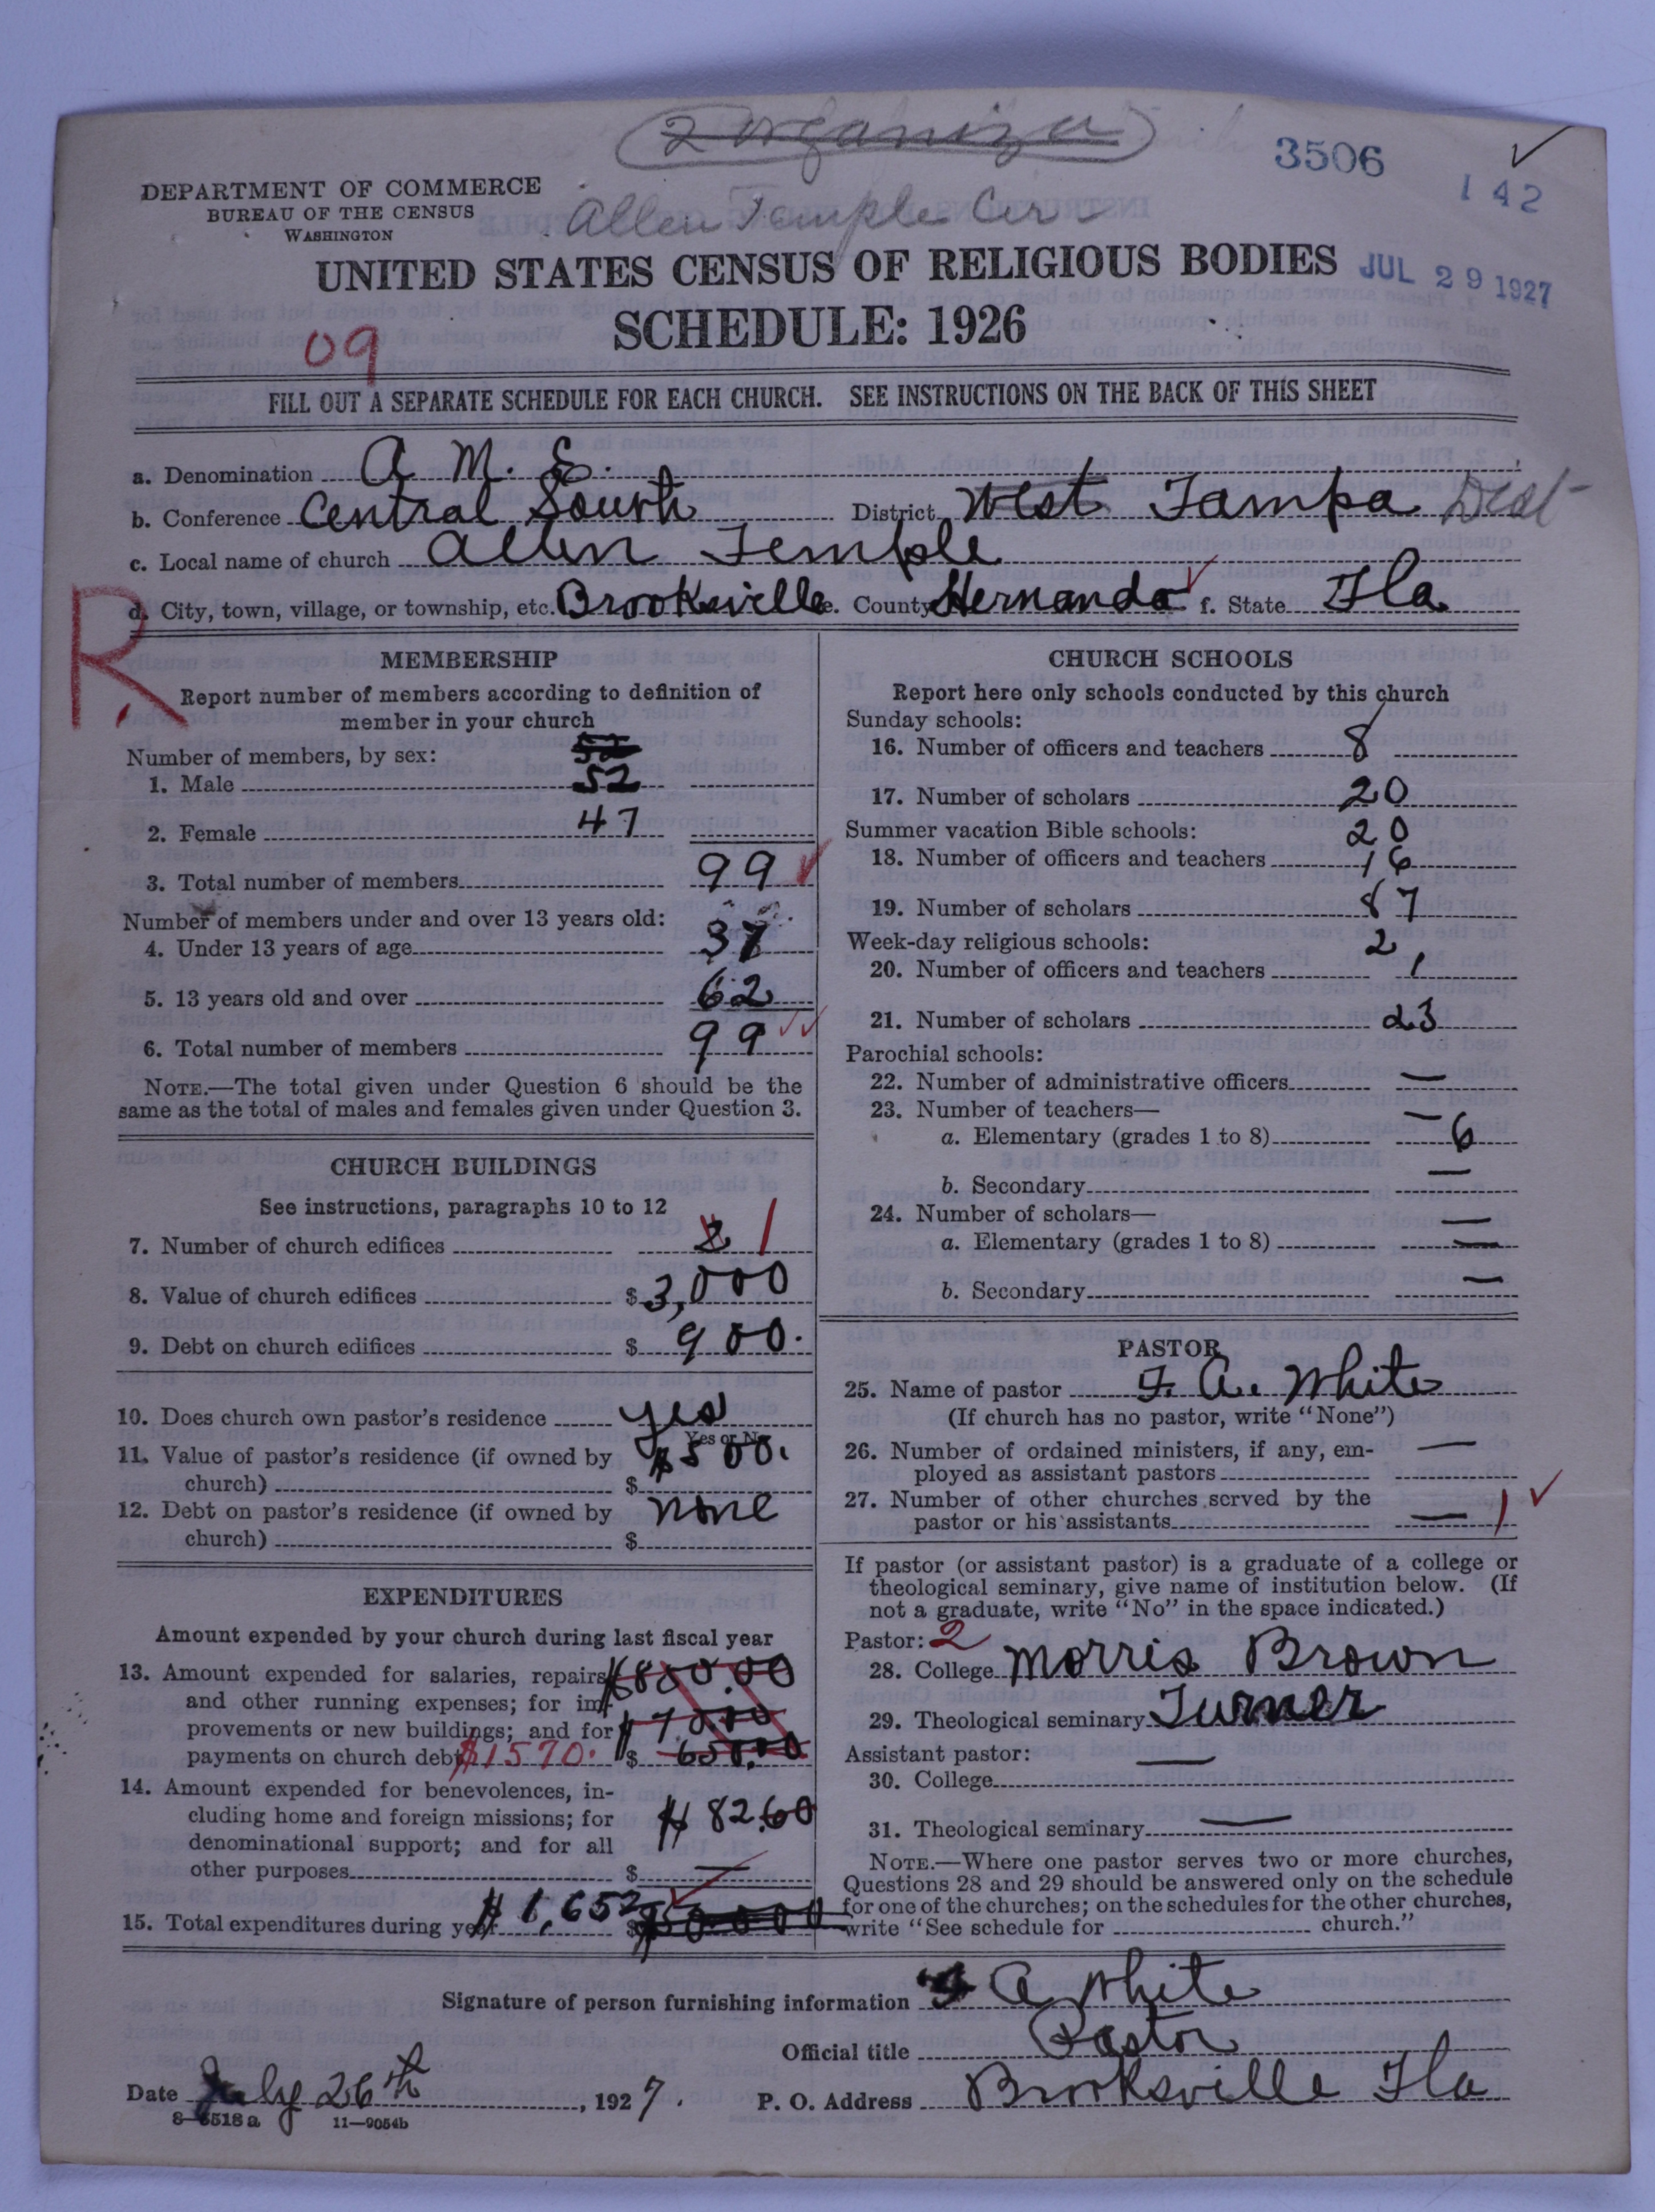 2 organiza
3506
142
DEPARTMENT OF COMMERCE
BUREAU OF THE CENSUS
WASHINGTON
Allen Temple Cir
UNITED STATES CENSUS OF RELIGIOUS BODIES
JUL 29 1927
SCHEDULE: 1926
09
FILL OUT A SEPARATE SCHEDULE FOR EACH CHURCH. SEE INSTRUCTIONS ON THE BACK OF THIS SHEET
a. Denomination A. M. E.
b. Conference Central South District West Tampa Dist
c. Local name of church Allen Temple
d. City, town, village, or township, etc. Brooksville e. County Hernando f. State Fla
R
MEMBERSHIP
Report number of members according to definition of
member in your church
Number of members, by sex:
52
1. Male 52
2. Female 47
3. Total number of members 99
Number of members under and over 13 years old:
4. Under 13 years of age 37
5. 13 years old and over 62
6. Total number of members 99
NOTE.—The total given under Question 6 should be the
same as the total of males and females given under Question 3.
CHURCH BUILDINGS
See instructions, paragraphs 10 to 12
7. Number of church edifices 2 1
8. Value of church edifices $3,000
9. Debt on church edifices $ 900.
10. Does church own pastor's residence yes
Yes or No
11. Value of pastor's residence (if owned by $500.
church) $
12. Debt on pastor's residence (if owned by none
church) $
EXPENDITURES
Amount expended by your church during last fiscal year
13. Amount expended for salaries, repairs $850.00
and other running expenses; for im-
provements or new buildings; and for $70.00
payments on church debt $1570. $ 650.00
14. Amount expended for benevolences, in-
cluding home and foreign missions; for $82.60
denominational support; and for all
other purposes $ —
15. Total expenditures during year $1,652 $
CHURCH SCHOOLS
Report here only schools conducted by this church
Sunday schools:
16. Number of officers and teachers 8
17. Number of scholars 20
Summer vacation Bible schools: 20
18. Number of officers and teachers 16
19. Number of scholars 87
Week-day religious schools: 2
20. Number of officers and teachers 1
21. Number of scholars 23
Parochial schools:
22. Number of administrative officers —
23. Number of teachers— —
a. Elementary (grades 1 to 8) 6
b. Secondary —
24. Number of scholars— —
a. Elementary (grades 1 to 8) —
b. Secondary —
PASTOR
25. Name of pastor F. A. White
(If church has no pastor, write "None")
26. Number of ordained ministers, if any, em- —
ployed as assistant pastors
27. Number of other churches served by the
pastor or his assistants — 1
If pastor (or assistant pastor) is a graduate of a college or
theological seminary, give name of institution below. (If
not a graduate, write "No" in the space indicated.)
Pastor: 2
28. College Morris Brown
29. Theological seminary Turner
Assistant pastor: —
30. College
31. Theological seminary —
NOTE.—Where one pastor serves two or more churches,
Questions 28 and 29 should be answered only on the schedule
for one of the churches; on the schedules for the other churches,
write "See schedule for church."
Signature of person furnishing information A White
Official title Pastor
Date July 26th, 1927. P. O. Address Brooksville Fla
8—6518a 11—9054b